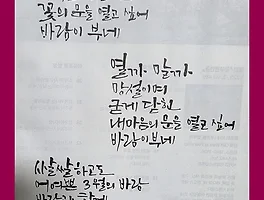 꽃의 문을 열고 싶어
바람이 부네
열까 말까
망설이며
굳게 닫힌
내마음의 문을 열고 싶어
바람이부네
사살쌀하고도
어여쁜 3월의 바람
바람과 함께